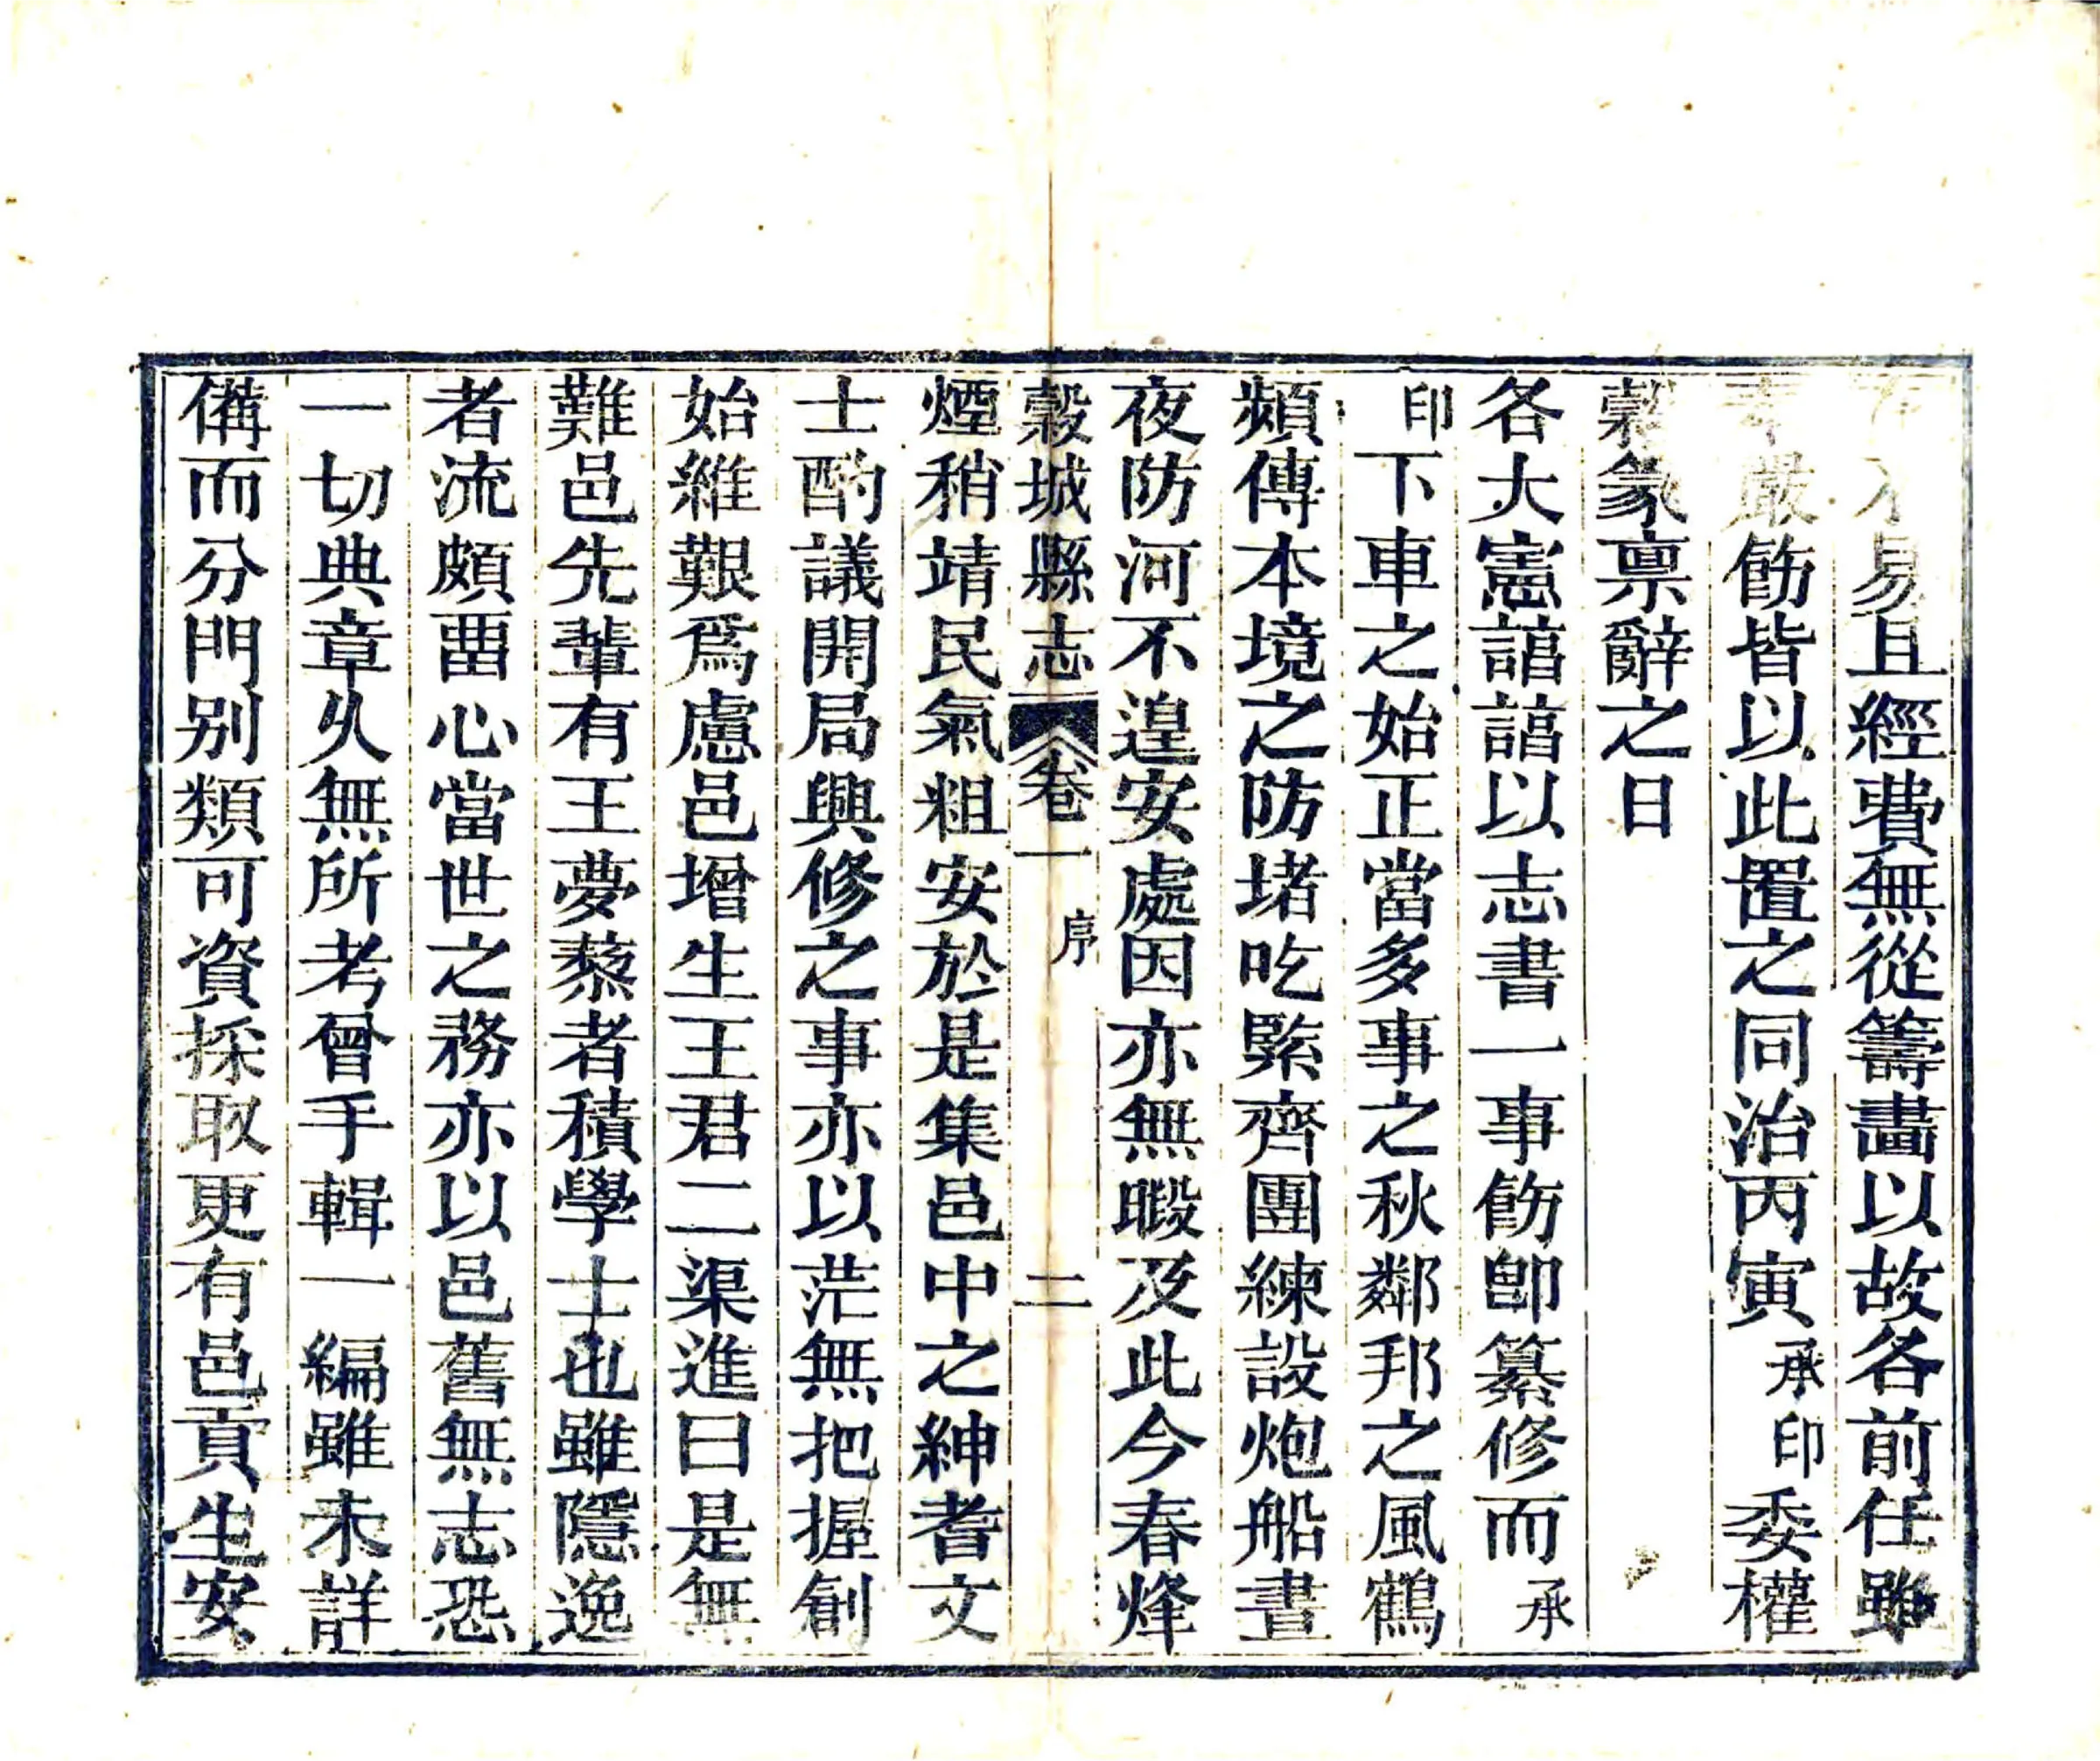 不易且經費無從籌畫以故各前任雖
奉嚴飭皆以此置之同治丙寅承印委權
穀篆禀辭之日
各大憲諳諳以志書一事飭卽纂修而承
印下車之始正當多事之秋鄰邦之風鶴
頻傳本境之防堵吃緊齊團練設炮船晝
夜防河不遑安處因亦無暇及此今春烽
穀城縣志 卷一 序 二
煙稍靖民氣粗安於是集邑中之紳耆文
士酌議開局興修之事亦以茫無把握創
始維艱爲慮邑增生王君二渠進曰是無
難邑先輩有王夢蔡者積學士也雖隱逸
者流頗畱心當世之務亦以邑舊無志恐
一切典章久無所考曾手輯一編雖未詳
備而分門別類可資採取更有邑貢生安